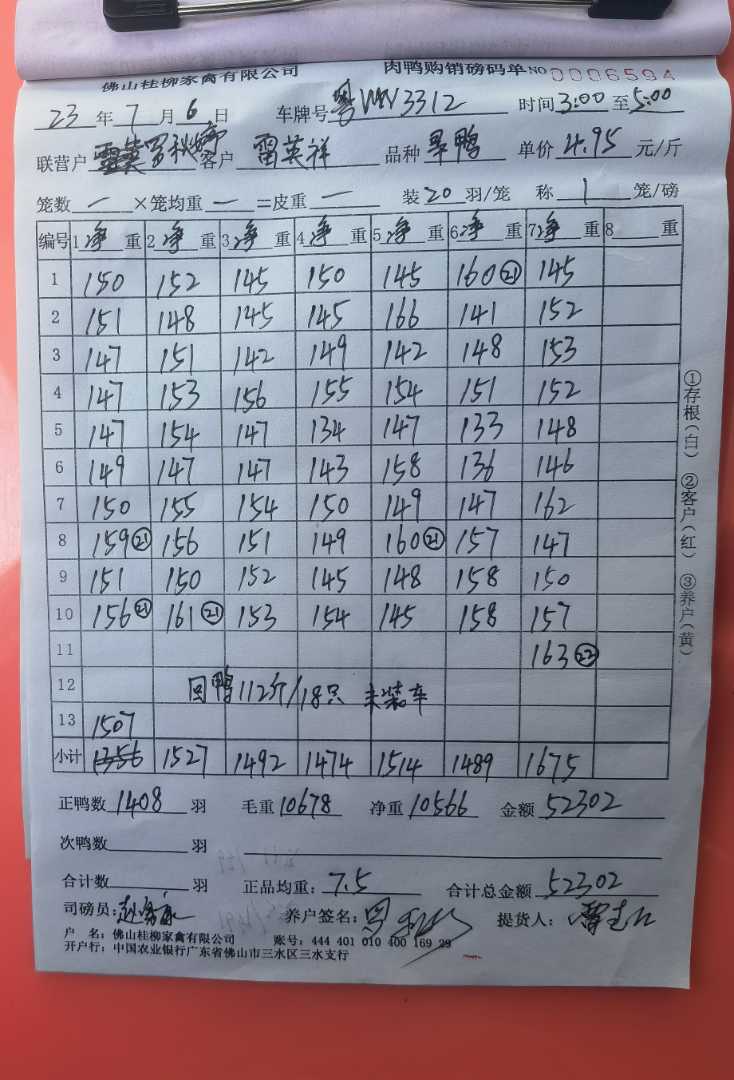 佛山桂柳家禽有限公司 肉鸭购销磅码单 NO 0006594
23 年 7 月 6 日 车牌号 粤 3312 时间 3:00 至 5:00
联营户 客户 雷英祥 品种 旱鸭 单价 4.95 元/斤
笼数 一 ×笼均重 一 =皮重 一 装 20 羽/笼 称 1 笼/磅
编号 1 净 重 2 净 重 3 净 重 4 净 重 5 净 重 6 净 重 7 净 重 8 重
1 150 152 145 150 145 160 ㉑ 145
2 151 148 145 145 166 141 152
3 147 151 142 149 142 148 153
4 147 153 156 155 154 151 152
5 147 154 147 134 147 133 148
6 149 147 147 143 158 136 146
7 150 155 154 150 149 147 162
8 159 ㉑ 156 151 149 160 ㉑ 157 147
9 151 150 152 145 148 158 150
10 156 ㉑ 161 ㉑ 153 154 145 158 157
11 163 ㉒
12 回鸭112斤/18只 未装车
13 1507
小计 1356 1527 1492 1474 1514 1489 1675
正鸭数 1408 羽 毛重 10678 净重 10566 金额 52302
次鸭数 羽
合计数 羽 正品均重: 7.5 合计总金额 52302
司磅员: 养户签名: 提货人:
户 名: 佛山桂柳家禽有限公司 账号: 444 401 010 400 169 29
开户行: 中国农业银行广东省佛山市三水区三水支行
①存根(白) ②客户(红) ③养户(黄)